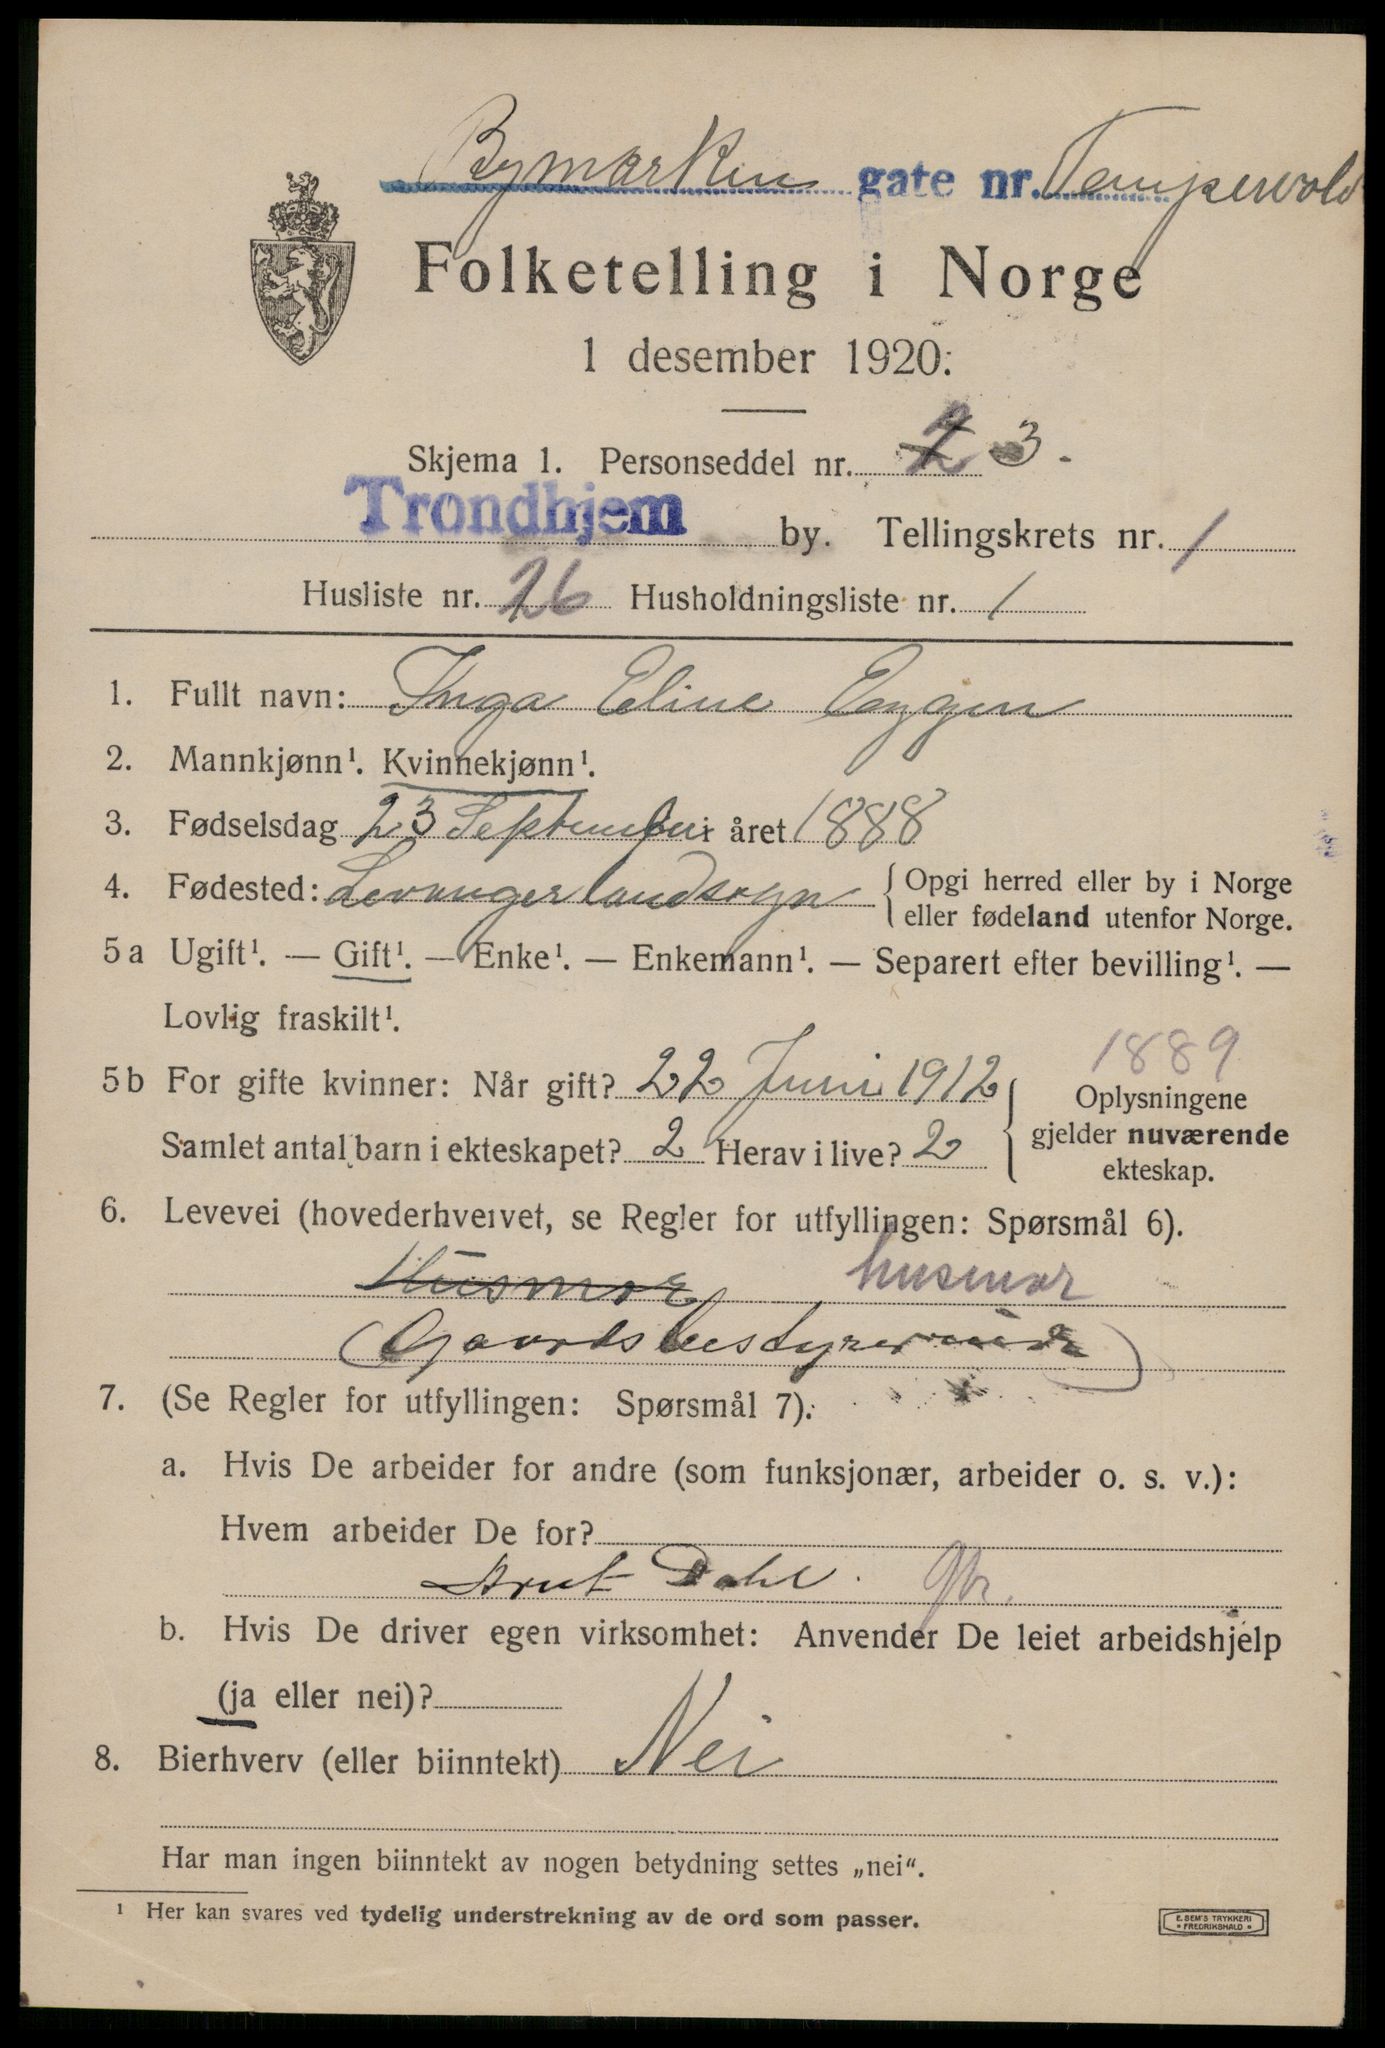 Bymarken gate nr. Tempervold
Folketelling i Norge
1 desember 1920.
Skjema 1. Personseddel nr. 2 3.
Trondhjem by. Tellingskrets nr. 1
Husliste nr. 26 Husholdningsliste nr. 1
1. Fullt navn: Inga Eline Eggen
2. Mannkjønn¹. Kvinnekjønn¹.
3. Fødselsdag 23 September i året 1888
4. Fødested: Levanger landsogn { Opgi herred eller by i Norge
eller fødeland utenfor Norge.
5a Ugift¹. — Gift¹. — Enke¹. — Enkemann¹. — Separert efter bevilling¹. —
Lovlig fraskilt¹.
1889
5b For gifte kvinner: Når gift? 22 Juni 1912 Oplysningene
gjelder nuværende
Samlet antal barn i ekteskapet? 2 Herav i live? 2
ekteskap.
6. Levevei (hovederhvervet, se Regler for utfyllingen: Spørsmål 6).
Husmor husmor
(Gaardsbestyrerinde)
7. (Se Regler for utfyllingen: Spørsmål 7).
a. Hvis De arbeider for andre (som funksjonær, arbeider o. s. v.):
Hvem arbeider De for?
Arnt Dahl. gbr.
b. Hvis De driver egen virksomhet: Anvender De leiet arbeidshjelp
(ja eller nei)?
8. Bierhverv (eller biinntekt) Nei
Har man ingen biinntekt av nogen betydning settes „nei“.
¹ Her kan svares ved tydelig understrekning av de ord som passer.
E. SEM'S TRYKKERI
FREDRIKSHALD